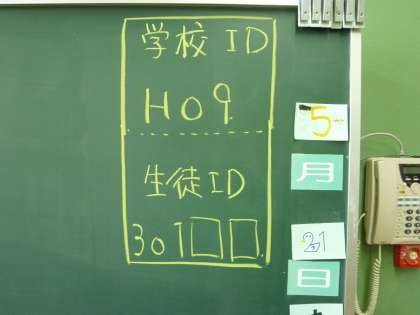 学校 ID
H09
生徒ID
301□□
5
月
21
日